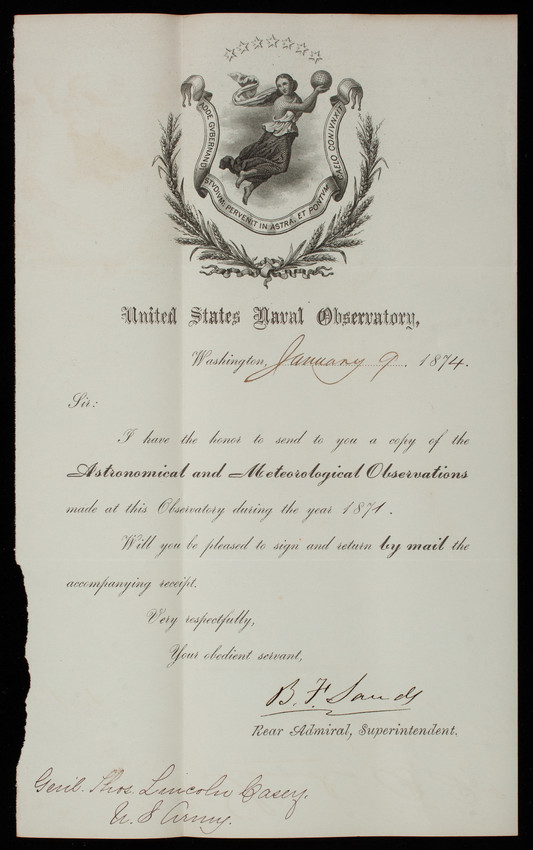 ADDE GVBERNANDI STVDIVM: PERVENIT IN ASTRA, ET PONTVM CAELO CONIVNXIT
United States Naval Observatory,
Washington, January 9. 1874.
Sir:
I have the honor to send to you a copy of the
Astronomical and Meteorological Observations
made at this Observatory during the year 1871.
Will you be pleased to sign and return by mail the
accompanying receipt.
Very respectfully,
Your obedient servant,
B. F. Sands
Rear Admiral, Superintendent.
Genl. Thos Lincoln Casey.
U. S Army.